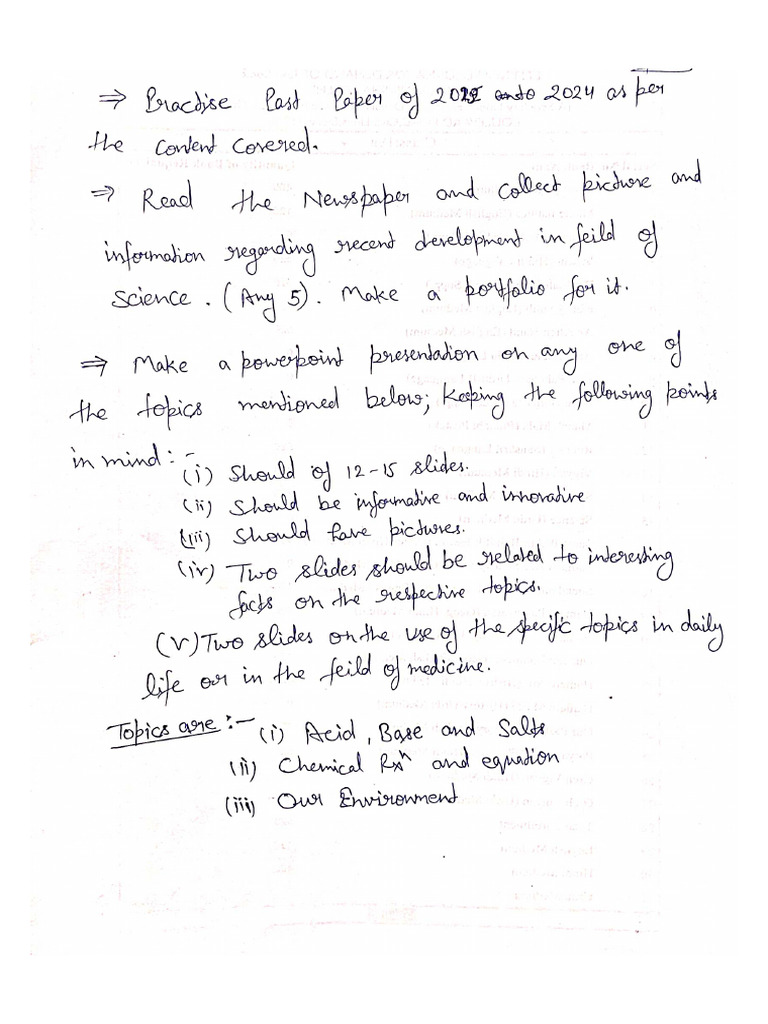 ⇒ Practise Past Paper of 2022 to 2024 as per
the content covered.
⇒ Read the Newspaper and collect picture and
information regarding recent development in feild of
science. (Any 5). Make a portfolio for it.
⇒ Make a powerpoint presentation on any one of
the topics mentioned below; Keeping the following points
in mind :-
(i) Should of 12-15 slides.
(ii) Should be informative and innovative
(iii) Should have pictures.
(iv) Two slides should be related to interesting
facts on the respective topics.
(v) Two slides on the use of the specific topics in daily
life or in the feild of medicine.
Topics are :- (i) Acid, Base and Salts
(ii) Chemical Rxⁿ and equation
(iii) Our Environment